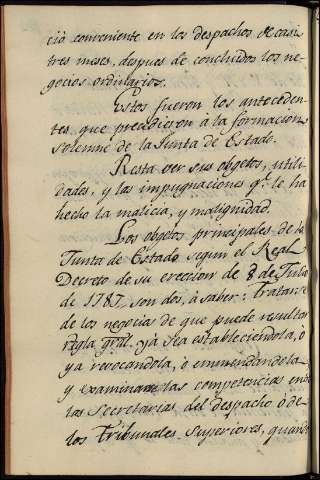 ció conveniente en los despachos de casi
tres meses, despues de concluidos los ne-
gocios ordinarios.
Estos fueron los anteceden-
tes, que precedieron á la formacion
solemne de la Junta de Estado.
Resta ver sus objetos, utili-
dades, y las impugnaciones q.e le ha
hecho la malicia, y malignidad.
Los objetos principales de la
Junta de Estado segun el Real
Decreto de su ereccion de 8 de Julio
de 1787. son dos, á saber: Tratarse
de los negocios de que puede resultar
regla gral, yá sea estableciendola, ó
ya revocandola, ó enmendandola
y examinarse las competencias entre
las Secretarias del despacho ó de
los Tribunales Superiores, quando